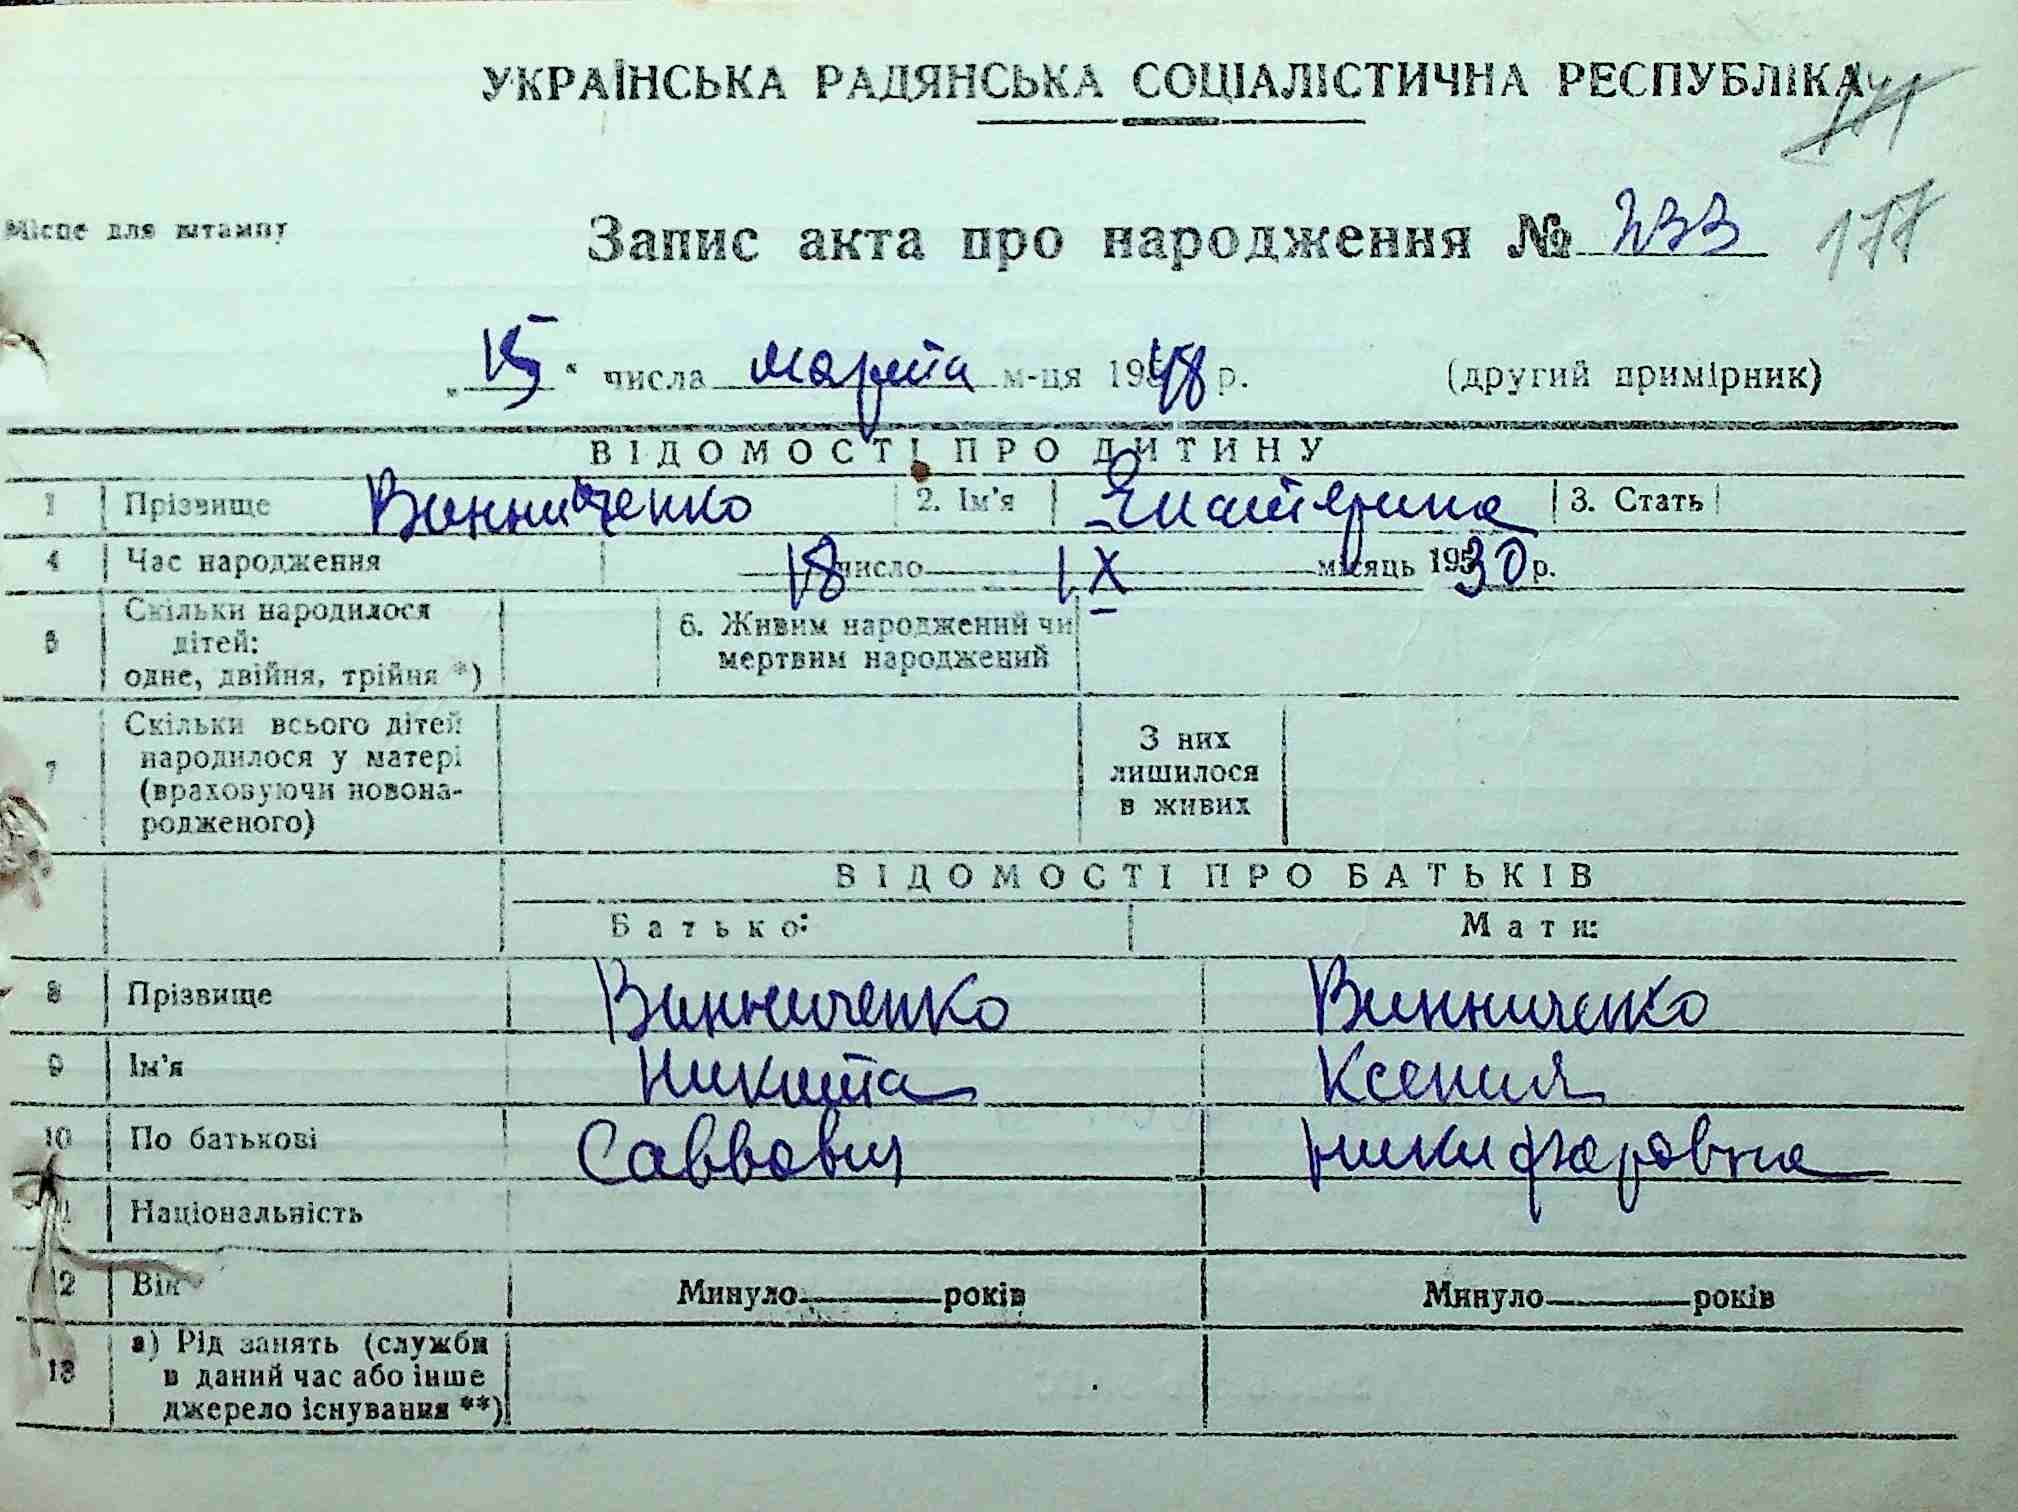 УКРАЇНСЬКА РАДЯНСЬКА СОЦІАЛІСТИЧНА РЕСПУБЛІКА
Місце для штампу
Запис акта про народження № 233 177
„15“ числа марта м-ця 1948 р. (другий примірник)
ВІДОМОСТІ ПРО ДИТИНУ
1 Прізвище Винниченко 2. Ім'я Екатерина 3. Стать
4 Час народження 18 число IX місяць 1930 р.
5 Скільки народилося дітей: одне, двійня, трійня *) 6. Живим народжений чи мертвим народжений
7 Скільки всього дітей народилося у матері (враховуючи новонародженого) З них лишилося в живих
ВІДОМОСТІ ПРО БАТЬКІВ
Батько: Мати:
8 Прізвище Винниченко Винниченко
9 Ім'я Никита Ксения
10 По батькові Саввович Никифоровна
11 Національність
12 Вік Минуло років Минуло років
13 а) Рід занять (служби в даний час або інше джерело існування **)